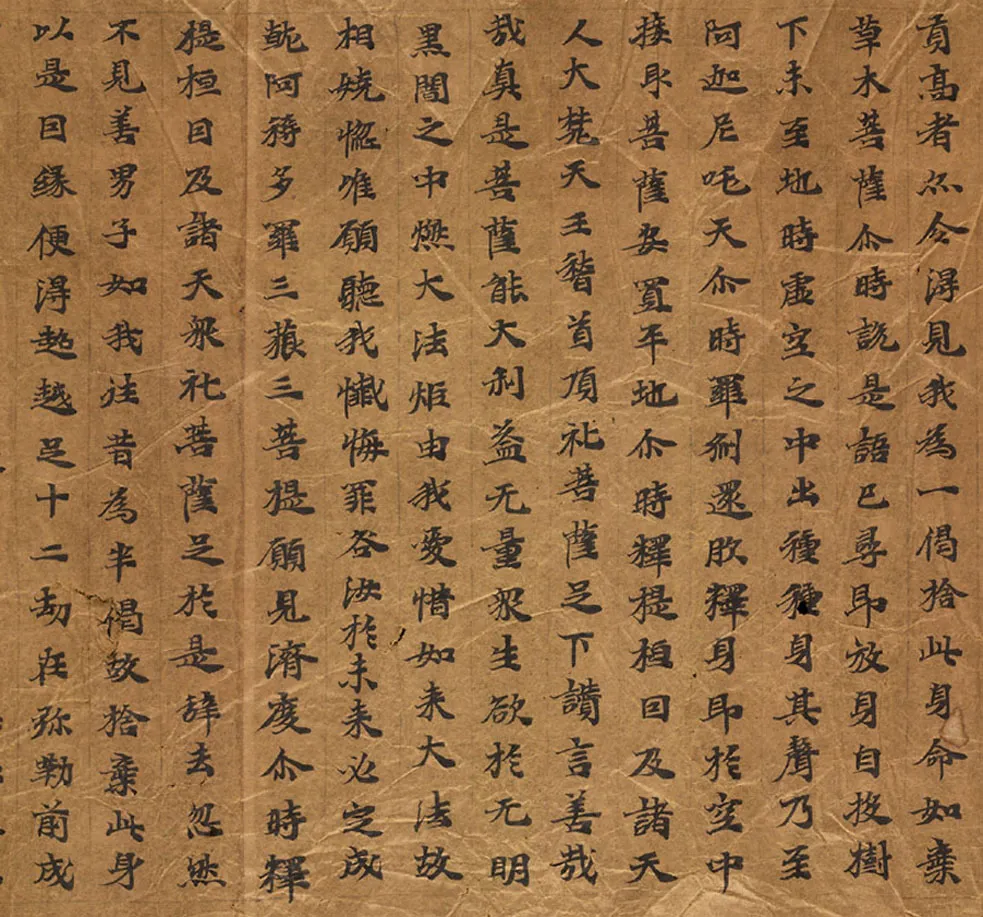 貢高者亦令得見我為一偈捨此身命如棄
草木菩薩尒時說是語已尋即放身自投樹
下未至地時虛空之中出種種身其聲乃至
阿迦尼吒天尒時羅剎還復釋身即於空中
接取菩薩安置平地尒時釋提桓因及諸天
人大梵天王稽首頂礼菩薩足下讚言善哉
哉真是菩薩能大利益无量眾生欲於无明
黑闇之中燃大法炬由我愛惜如来大法故
相嬈惱唯願聽我懺悔罪咎汝於未来必定成
就阿耨多羅三藐三菩提願見濟度尒時釋
提桓因及諸天眾礼菩薩足於是辝去忽然
不見善男子如我往昔為半偈故捨棄此身
以是因緣便得超越足十二劫在弥勒前成